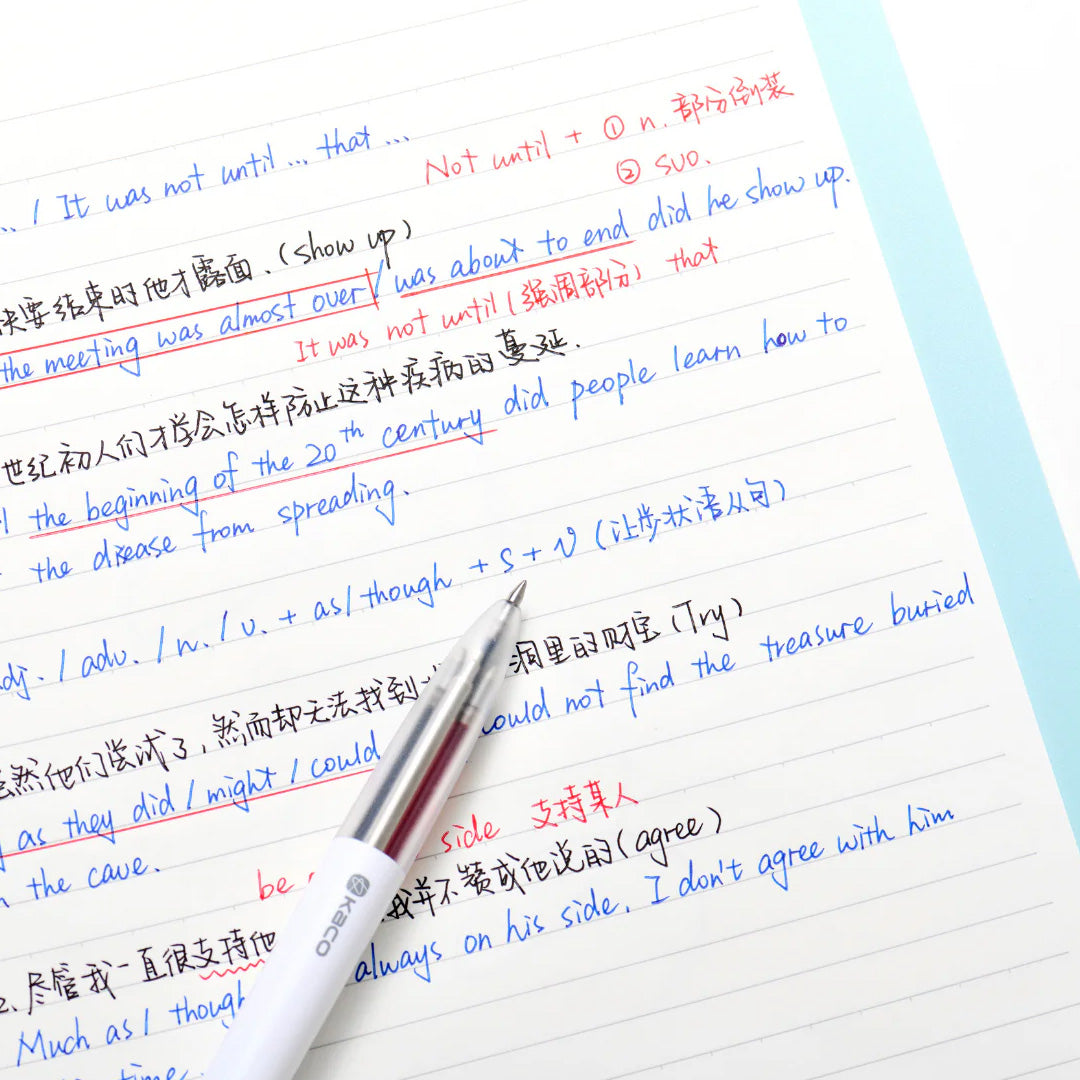 ... / It was not until ... that ...
Not until + ① n. 部分倒装
② svo.
快要结束时他才露面.(show up)
the meeting was almost over / was about to end did he show up.
It was not until (强调部分) that
世纪初人们才学会怎样防止这种疾病的蔓延.
the beginning of the 20th century did people learn how to
the disease from spreading.
adj. / adv. / n. / v. + as / though + s + v (让步状语从句)
虽然他们尝试了,然而却无法找到 洞里的财宝 (Try)
as they did / might / could could not find the treasure buried
the cave.
be side 支持某人
2. 尽管我一直很支持他 我并不赞成他说的(agree)
Much as / though always on his side, I don't agree with him
time.
kaco